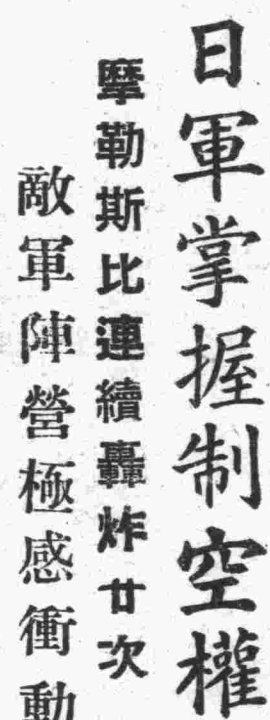 日軍掌握制空權
摩勒斯比連續轟炸廿次
敵軍陣營極感衝動